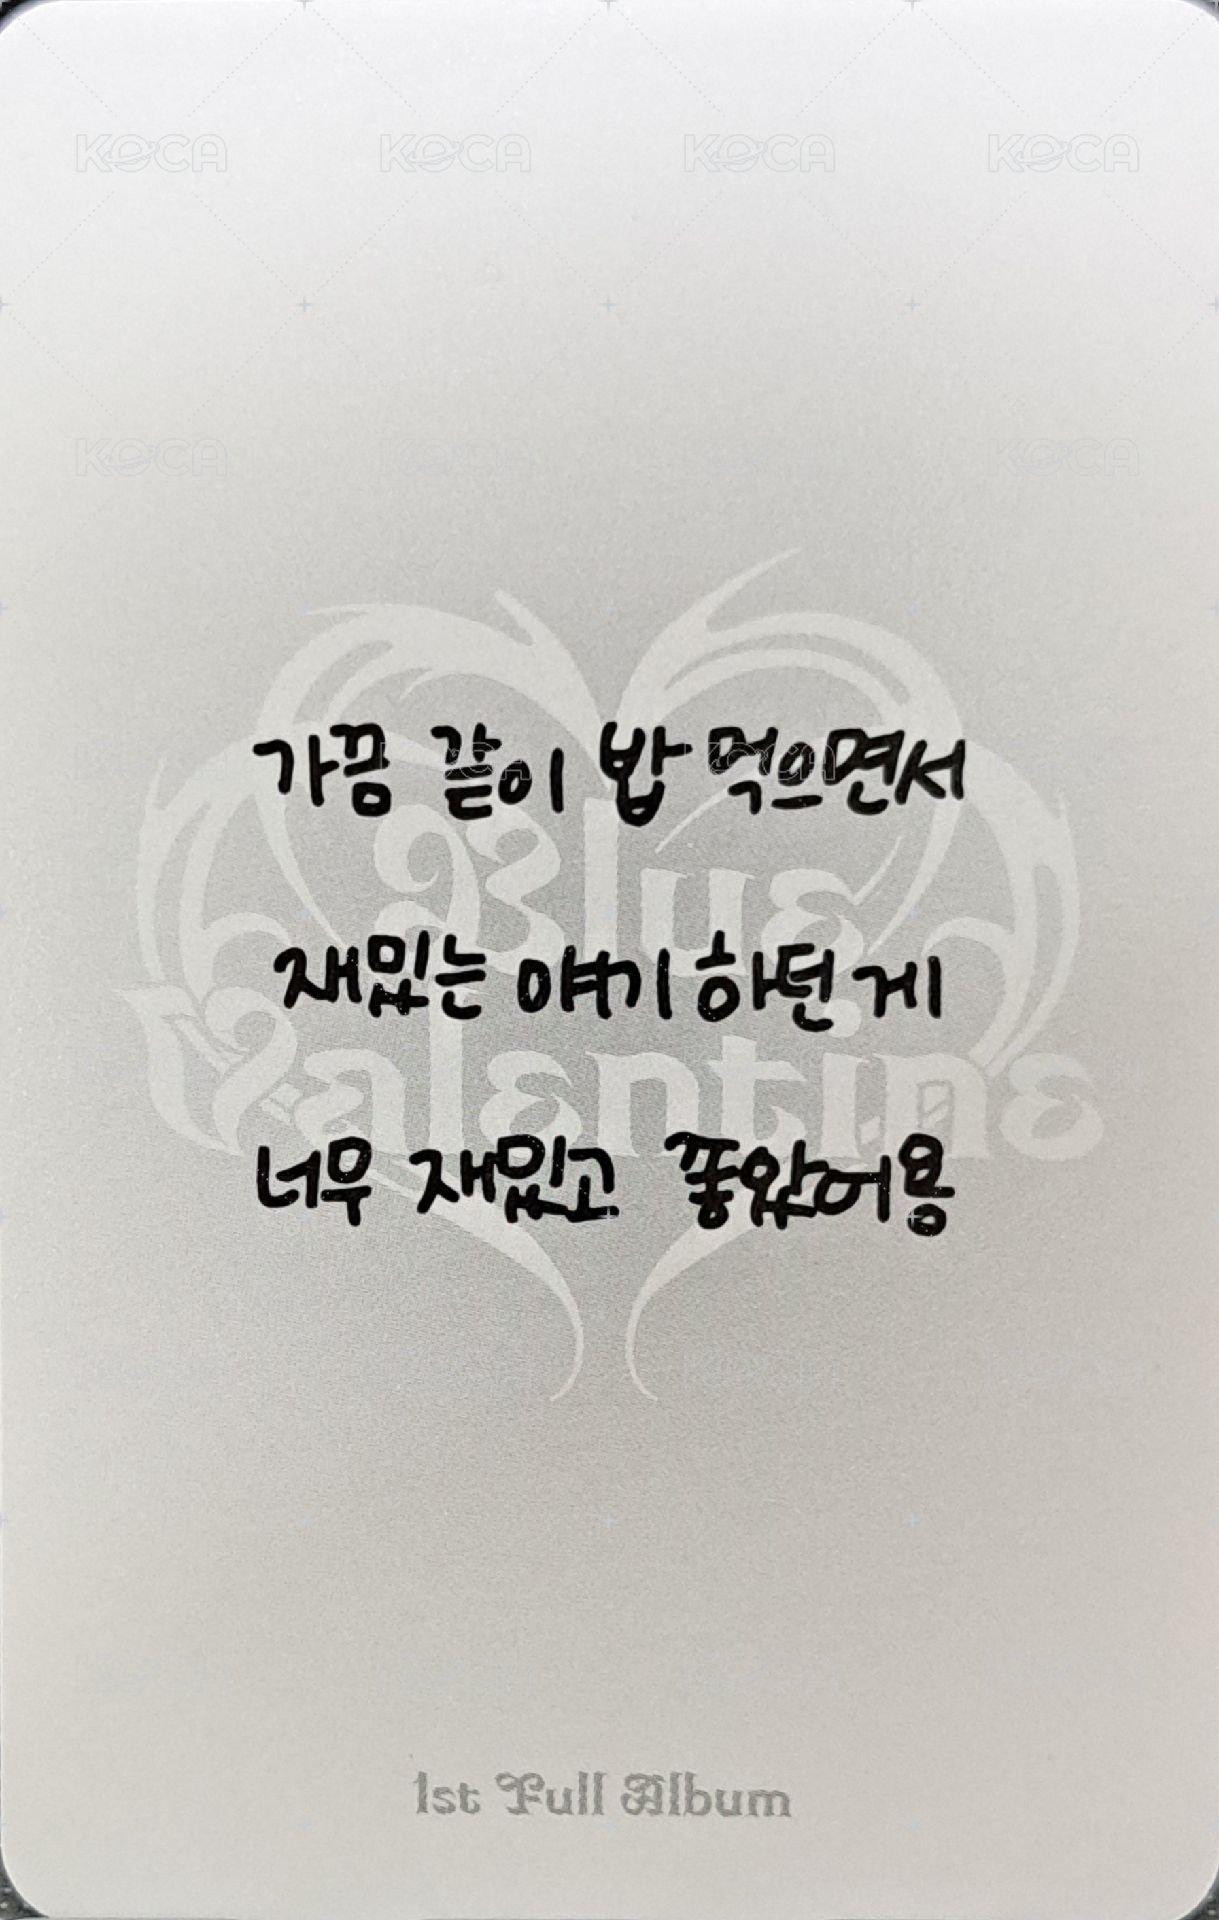 KOCA KOCA KOCA KOCA
KOCA KOCA KOCA
가끔 같이 밥 먹으면서
Blue
재밌는 얘기 하던 게
Valentine
너무 재밌고 좋았어용
1st Full Album